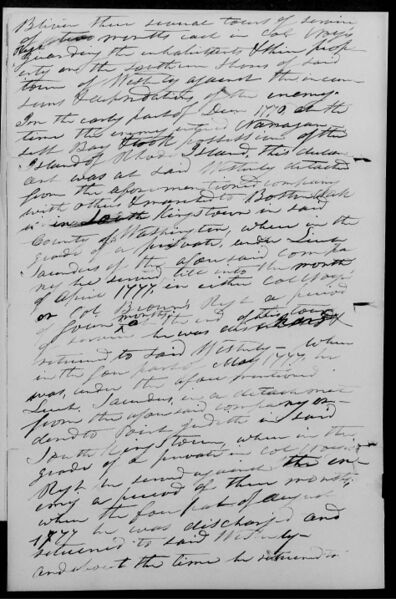 Bliven their several tours of service
of two months each in Col Noyes
guarding the inhabitants & their prop
erty on the southern shores of said
town of Westerly against the incur
sions & depredations of the enemy.
In the early part of Decr 1776 at the
time the enemy entered Narragan
sett Bay & took possession of the
Island of Rhode Island, this declar
ant was at said Westerly detached
from the aforementioned company
with others & marched to Boston Neck
in South Kingstown in said
County of Washington, when in the
grade of a private, under Lieut
Saunders of the aforesaid compa
ny he served till into the month
of April 1777, in either Col Noyes'
or Col Browns Regt a period
of four months the end of this tour
of service he was discharged &
returned to said Westerly - when
in the fore part of May 1777 he
was, under the aforementioned
Lieut. Saunders, in a detachment
from the aforesaid company or-
dered to Point Judith in said
South Kingstown, when in the
grade of a private in Col Noyes's
Regt he served against the en
emy a period of three months
when the fore part of August
1777 he was discharged and
returned to said Westerly -
and about the time he returned to